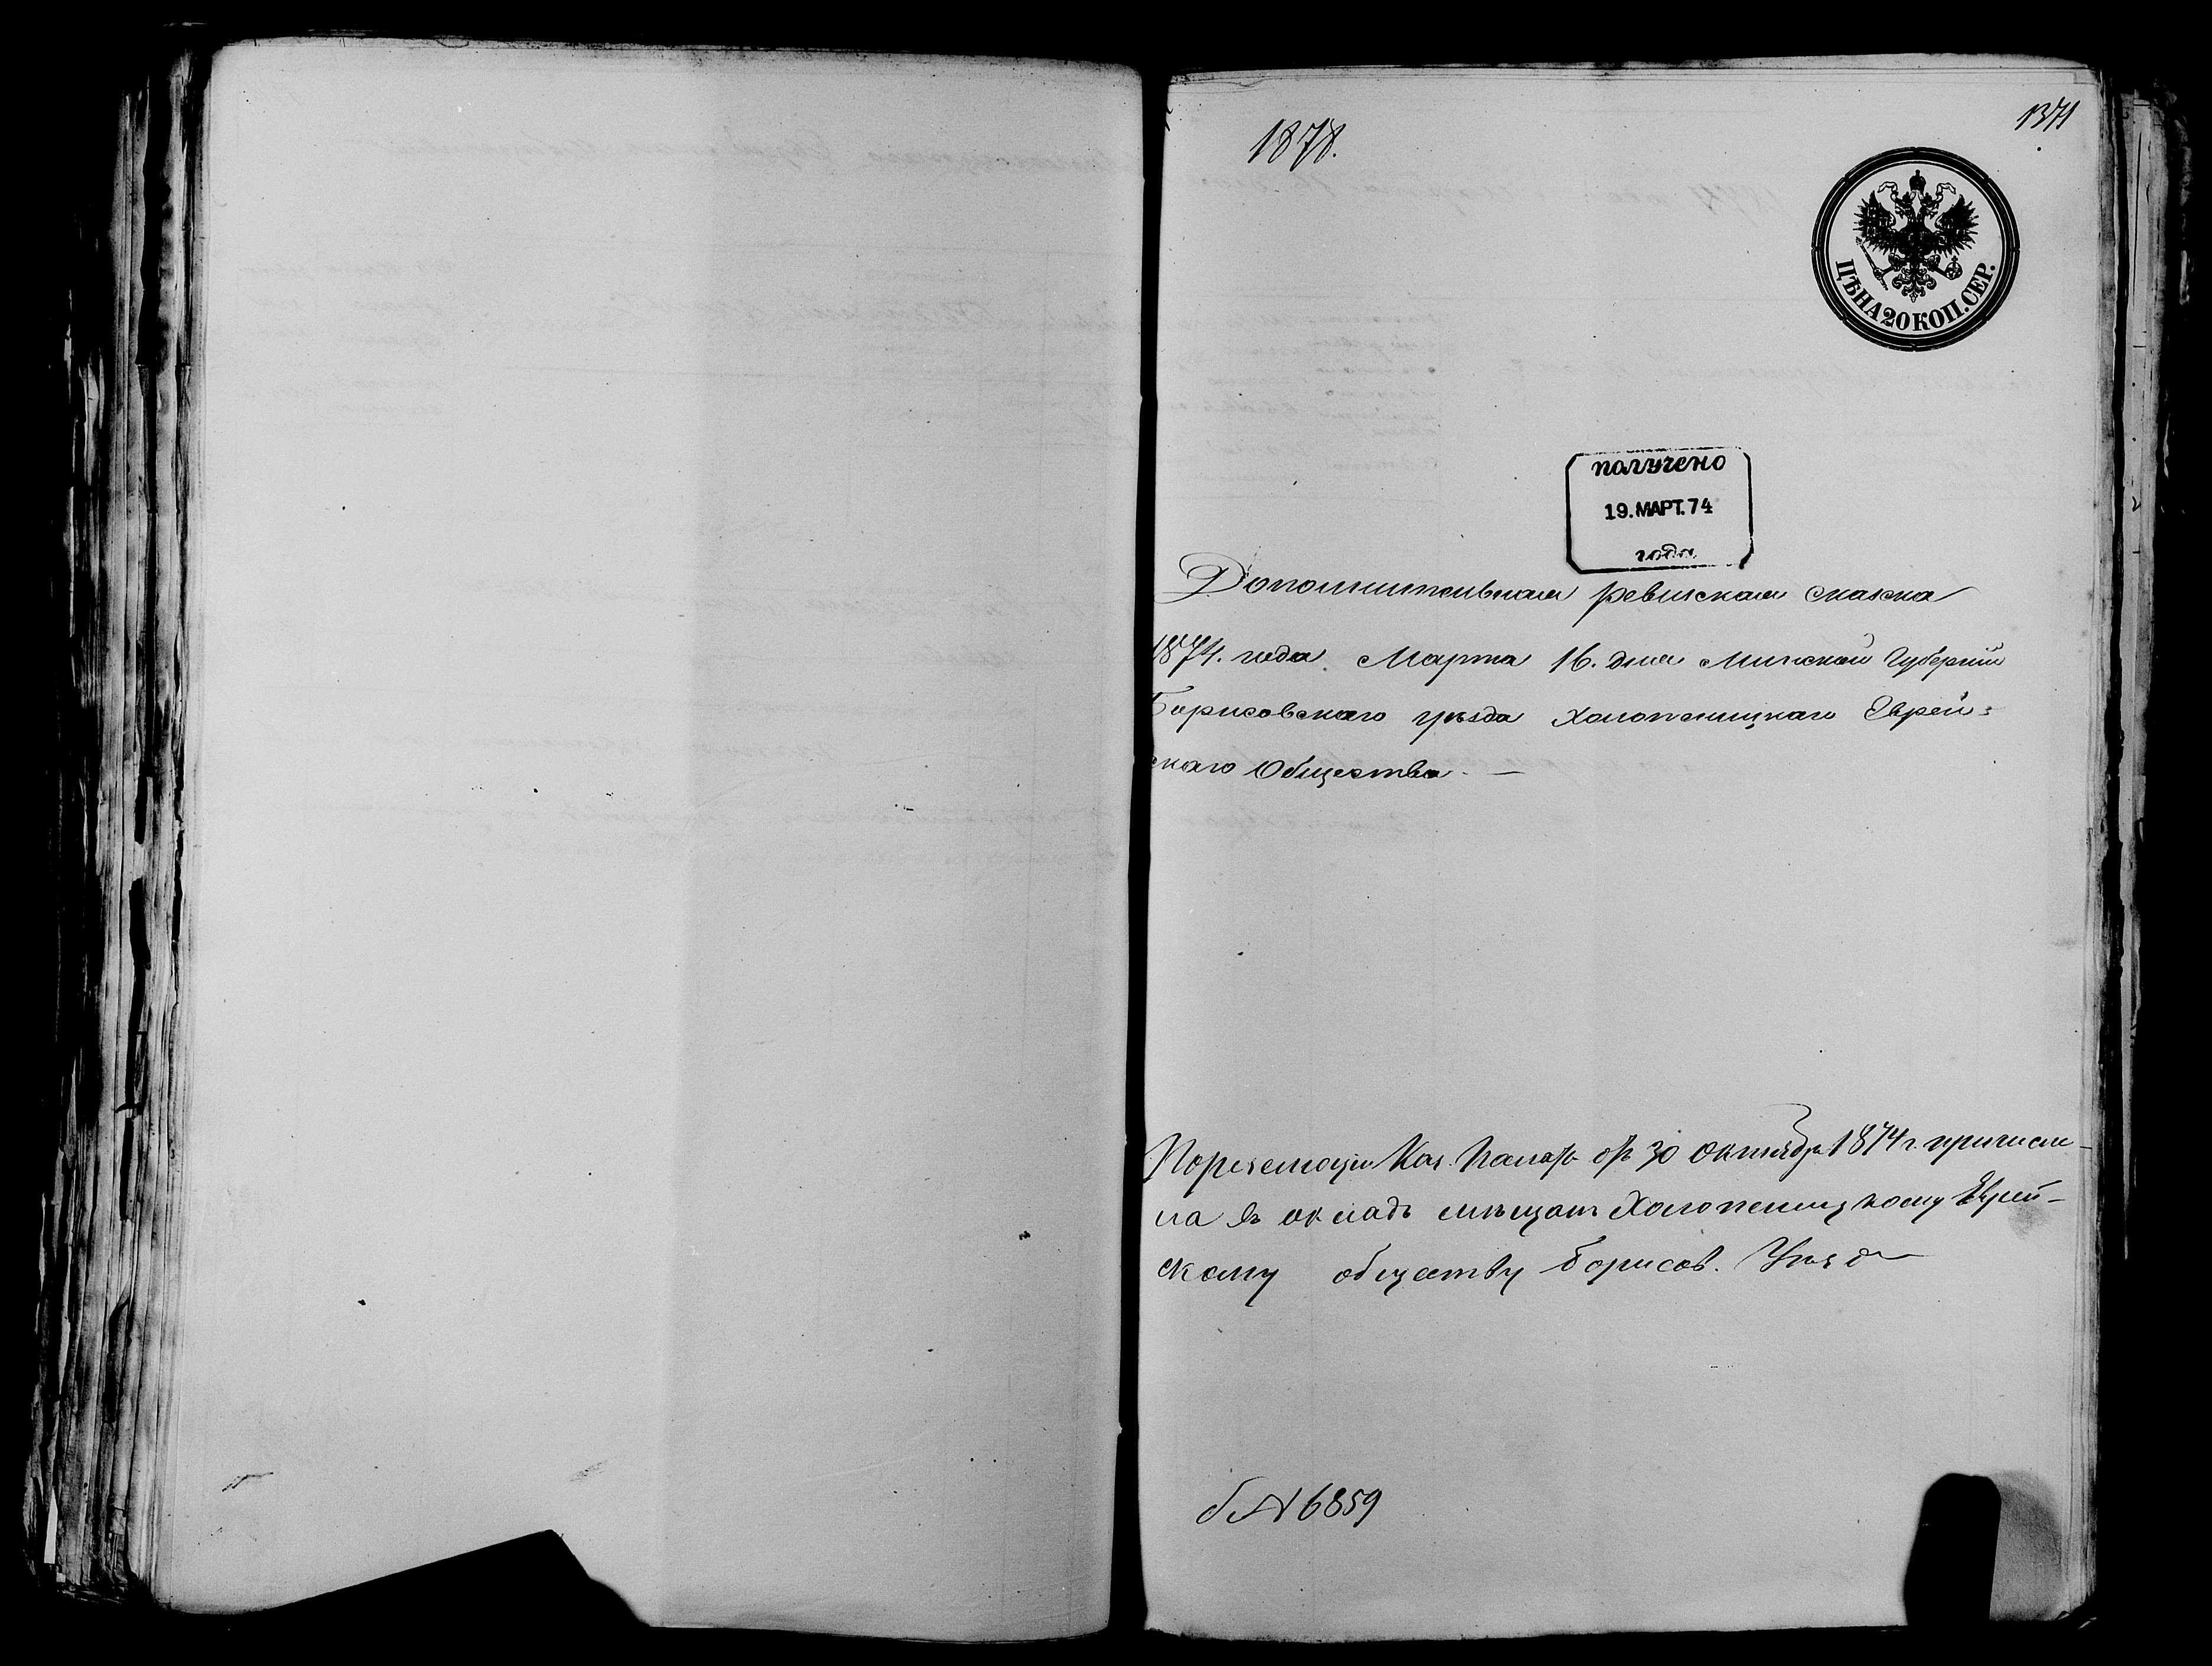 1371
1878.
ЦѢНА 20 КОП. СЕР.
получено
19. МАРТ. 74
года
Дополнительная ревизская сказка
1874. года Марта 16. дня Минской Губерніи
Борисовскаго уѣзда Холопеницкаго Еврей-
скаго Общества. —
Каз. Палаты 30 Октября 1874 г. причисле-
на въ окладъ мѣщанъ Холопеницкому Еврей-
скому обществу Борисов. Уѣзда
№ 6859